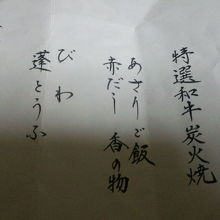 特選和牛炭火焼
あさりご飯
赤だし 香の物
びわ
蓬とうふ